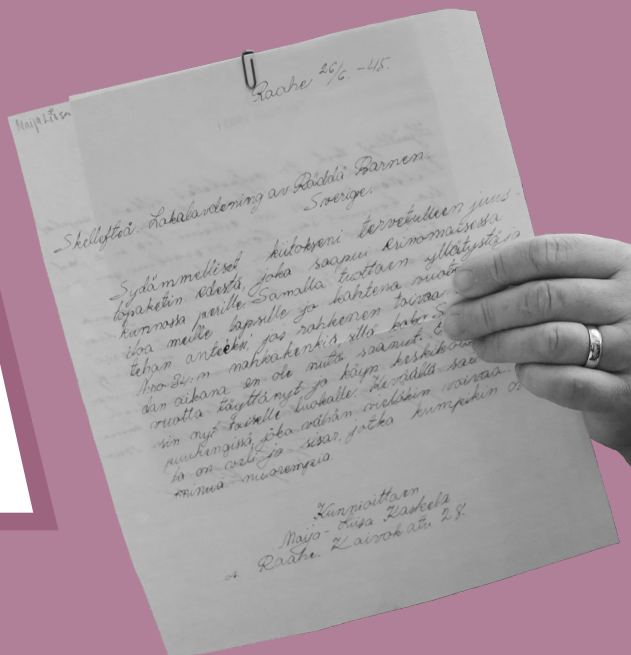 Maija Liisa
Raahe 26/6. -45.
Skellefteå. Lokalavdening av Rädda Barnen.
Sverige.
Sydämmelliset kiitokseni tervetulleen juus-
topaketin edestä, joka saapui erinomaisessa
kunnossa perille. Samalla tuottaen yllätystä ja
iloa meille lapsille ja kahtena vuote
tehän anteeksi, jos rohkenen toivoa
Nro 34:n nahkakenkiä, sillä kahr. S
dan aikana en ole niitä saanut.
vuotta täyttänyt ja käyn keskikou
sin nyt toiselle luokalle. Keväällä sai
puukengissä, joka vähän vieläkin vaivaa.
la on veli ja sisar, jotka kumpikin o
minua nuorempia.
Kunnioittaen
Maija-Liisa Kaskela
Raahe, Laivakatu 28.